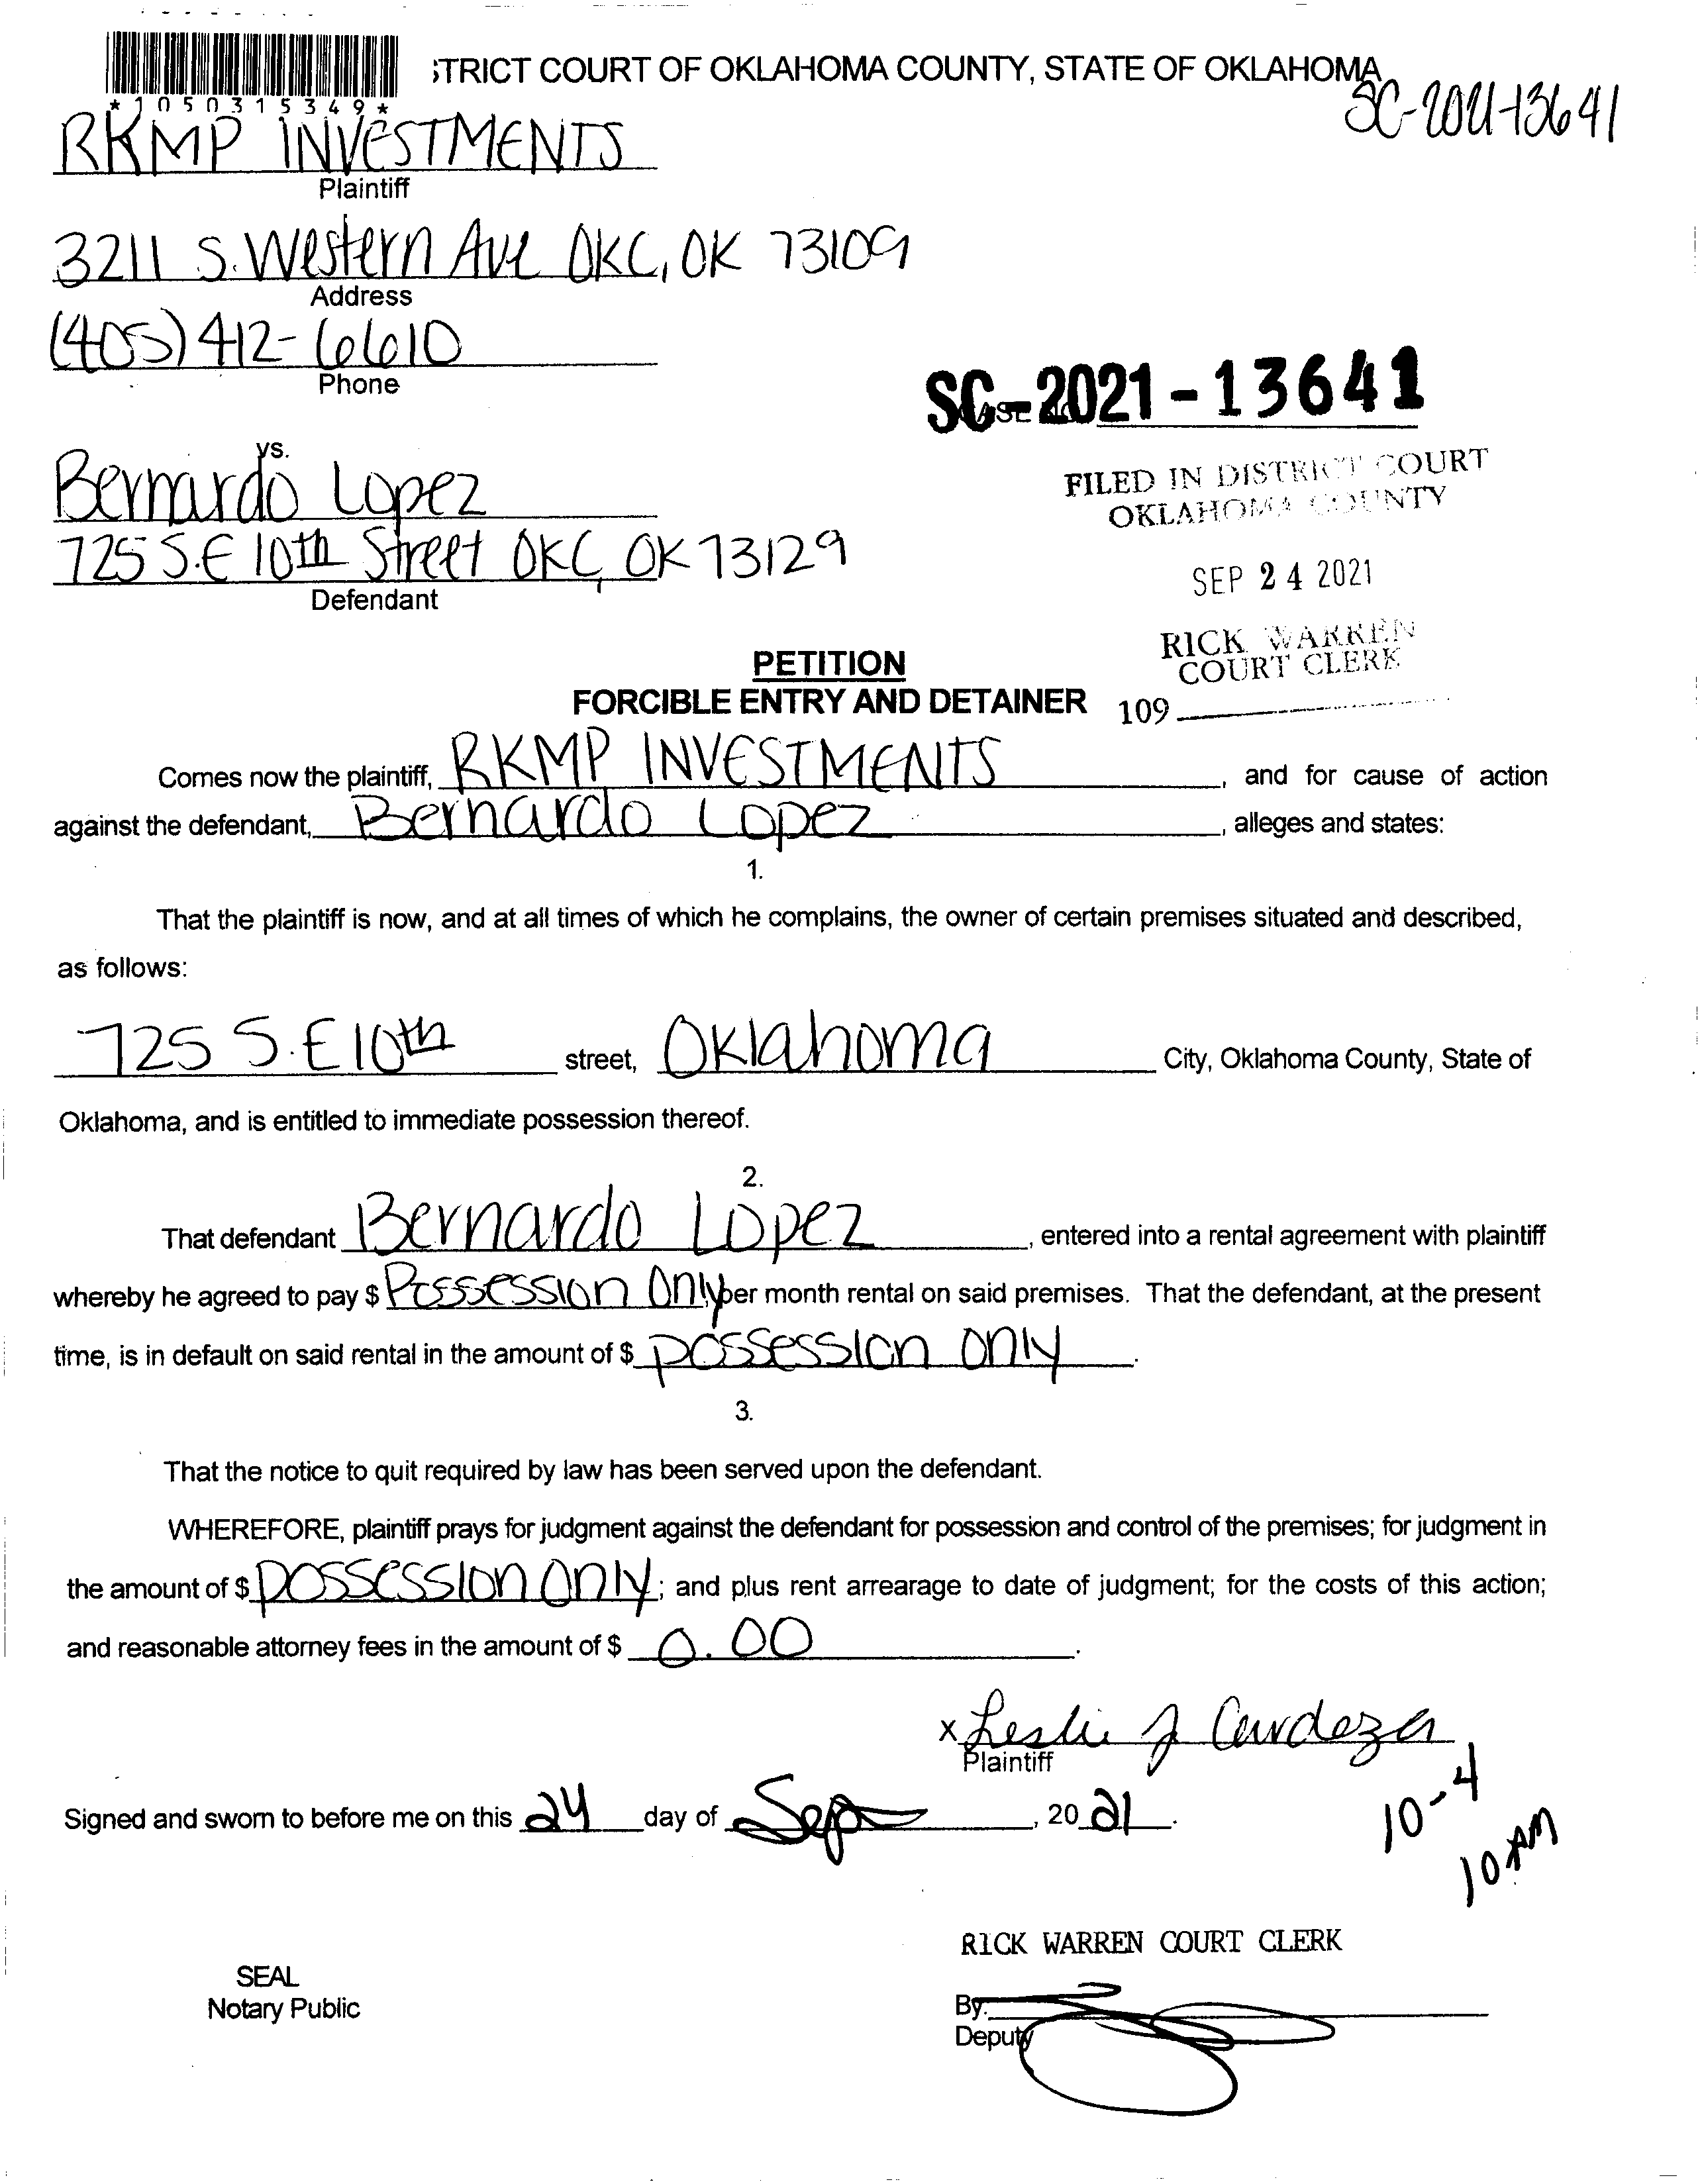 *1050315349*
STRICT COURT OF OKLAHOMA COUNTY, STATE OF OKLAHOMA
SC-2021-13641
RKMP INVESTMENTS
Plaintiff
3211 S. Western Ave OKC, OK 73109
Address
(405) 412-6610
Phone
SC-2021-13641
CASE NO.
vs.
Bernardo Lopez
725 S.E 10th Street OKC, OK 73129
Defendant
FILED IN DISTRICT COURT
OKLAHOMA COUNTY
SEP 24 2021
RICK WARREN
COURT CLERK
109
PETITION
FORCIBLE ENTRY AND DETAINER
Comes now the plaintiff, RKMP INVESTMENTS, and for cause of action
against the defendant, Bernardo Lopez, alleges and states:
1.
That the plaintiff is now, and at all times of which he complains, the owner of certain premises situated and described,
as follows:
725 S.E 10th street, Oklahoma City, Oklahoma County, State of
Oklahoma, and is entitled to immediate possession thereof.
2.
That defendant Bernardo Lopez, entered into a rental agreement with plaintiff
whereby he agreed to pay $ Possession Only per month rental on said premises. That the defendant, at the present
time, is in default on said rental in the amount of $ possession only.
3.
That the notice to quit required by law has been served upon the defendant.
WHEREFORE, plaintiff prays for judgment against the defendant for possession and control of the premises; for judgment in
the amount of $ possession only; and plus rent arrearage to date of judgment; for the costs of this action;
and reasonable attorney fees in the amount of $ 0.00.
x Leslie J Cardeza
Plaintiff
Signed and sworn to before me on this 24 day of Sep, 2021.
10-4
10 AM
RICK WARREN COURT CLERK
SEAL
Notary Public
By:
Deputy